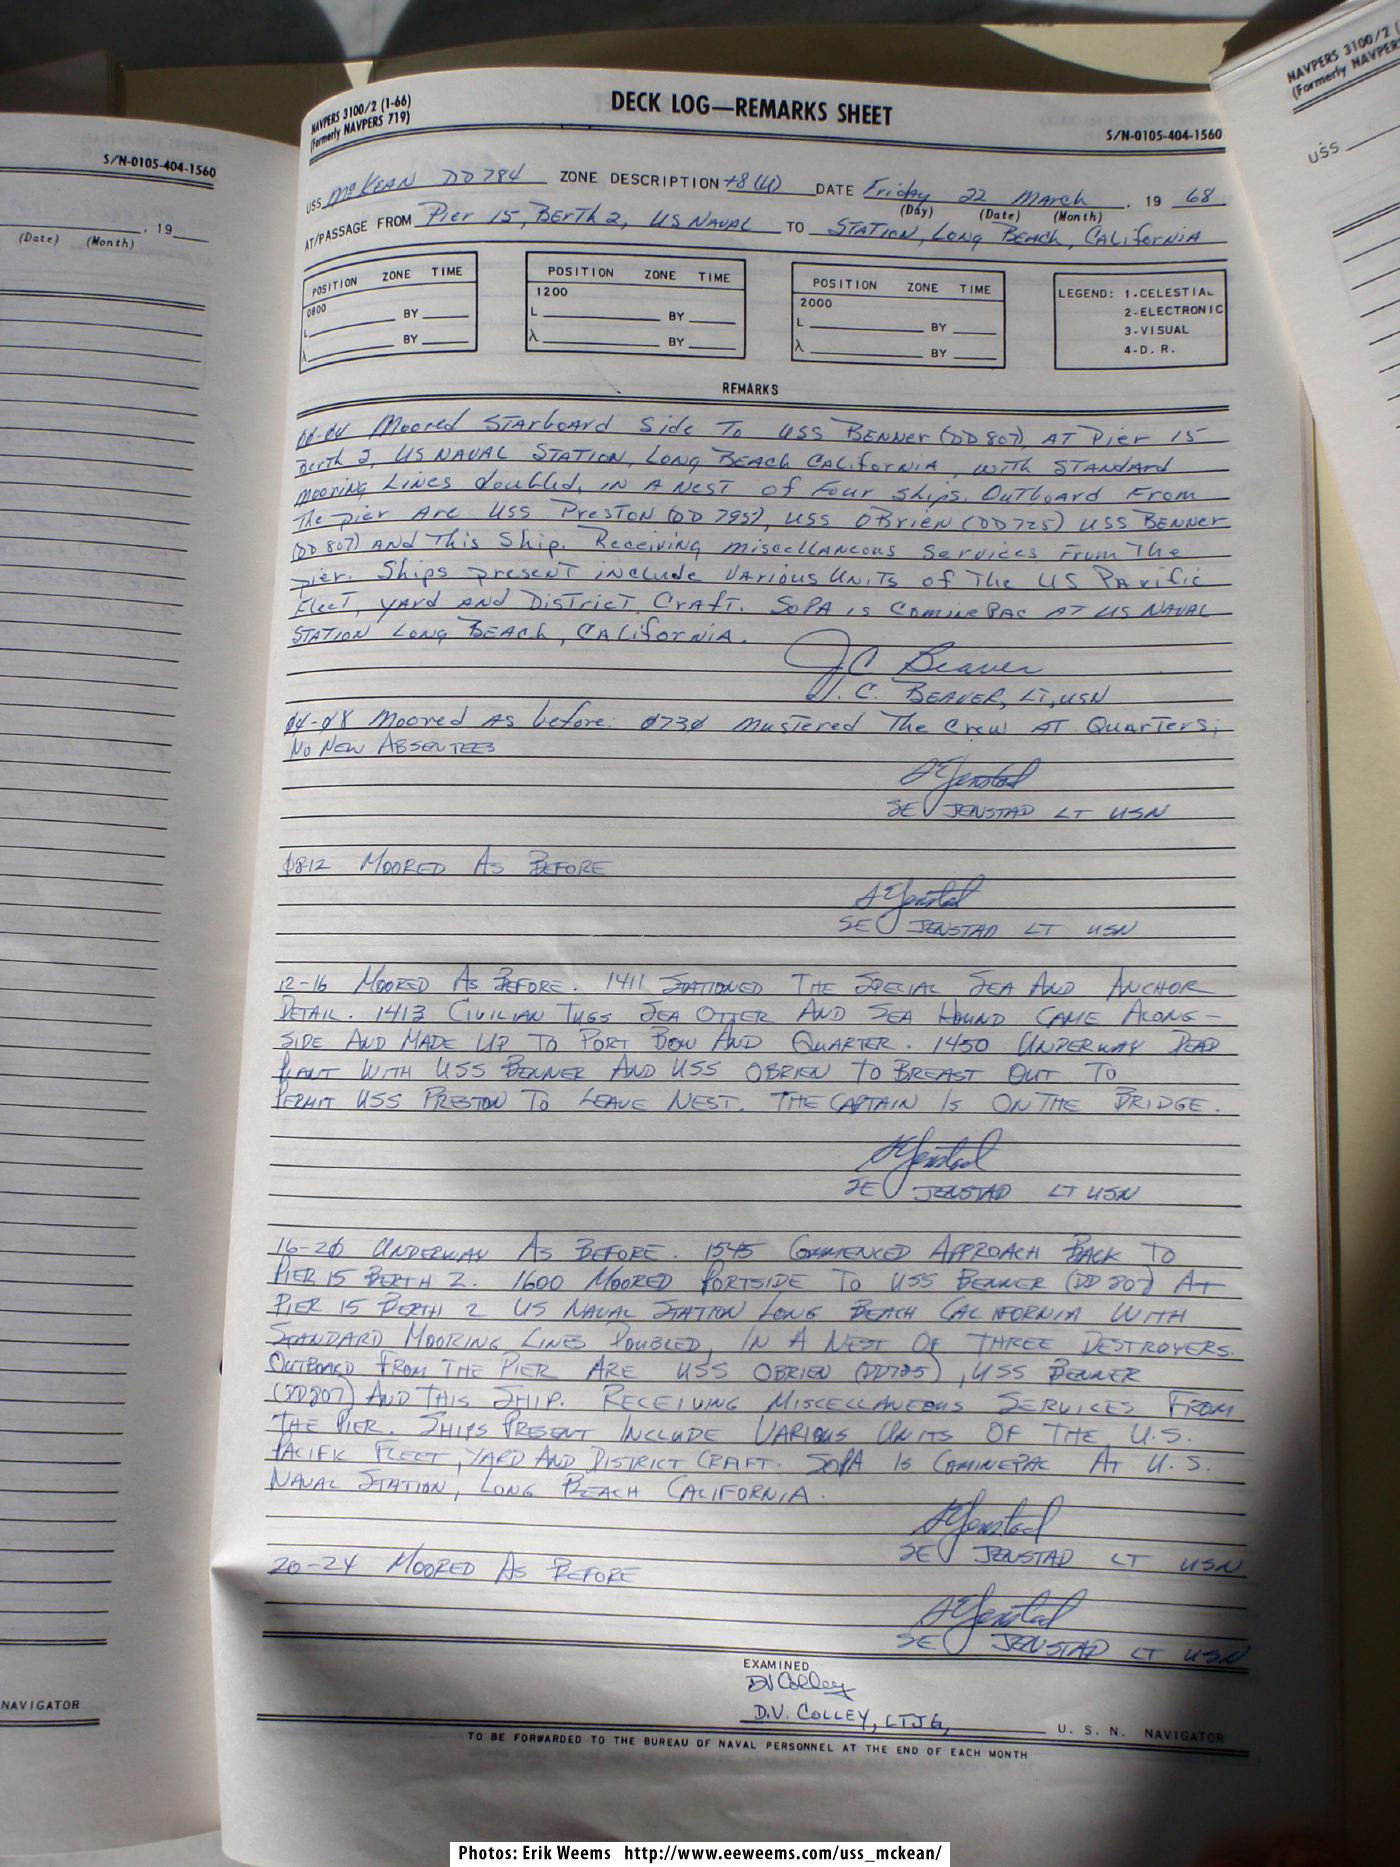 NAVPERS 3100/2 (1-66)
(Formerly NAVPERS 719)
DECK LOG—REMARKS SHEET
S/N-0105-404-1560
USS McKEAN DD 784 ZONE DESCRIPTION +8(U) DATE Friday 22 March . 19 68
(Day) (Date) (Month)
AT/PASSAGE FROM Pier 15, Berth 2, US NAVAL TO STATION, Long Beach, California
POSITION ZONE TIME
0800
L BY
λ BY
POSITION ZONE TIME
1200
L BY
λ BY
POSITION ZONE TIME
2000
L BY
λ BY
LEGEND: 1-CELESTIAL
2-ELECTRONIC
3-VISUAL
4-D. R.
REMARKS
00-04 Moored Starboard Side To USS Benner (DD 807) AT Pier 15
Berth 2, US NAVAL STATION, Long Beach California, with STANDARD
mooring Lines doubled, in a nest of four ships. Outboard From
The pier Are USS Preston (DD 795), USS O'Brien (DD 725) USS Benner
(DD 807) And This Ship. Receiving miscellaneous Services From The
pier. Ships present include Various Units of The US Pacific
Fleet, yard and District Craft. SOPA is CominePac AT US NAVAL
STATION Long Beach, California.
JC Beaver
J. C. BEAVER, LT, USN
04-08 Moored as before: 0730 Mustered The Crew AT Quarters;
No New Absentees
SE Jenstad
SE JENSTAD LT USN
0812 MOORED AS BEFORE
SE Jenstad
SE JENSTAD LT USN
12-16 MOORED AS BEFORE. 1411 STATIONED THE SPECIAL SEA AND ANCHOR
DETAIL. 1413 CIVILIAN TUGS SEA OTTER AND SEA HOUND CAME ALONG-
SIDE AND MADE UP TO PORT BOW AND QUARTER. 1450 UNDERWAY DEAD
PLANT WITH USS BENNER AND USS OBRIEN TO BREAST OUT TO
PERMIT USS PRESTON TO LEAVE NEST. THE CAPTAIN IS ON THE BRIDGE.
SE Jenstad
SE JENSTAD LT USN
16-20 UNDERWAY AS BEFORE. 1545 COMMENCED APPROACH BACK TO
PIER 15 BERTH 2. 1600 MOORED PORTSIDE TO USS BENNER (DD 807) AT
PIER 15 BERTH 2 US NAVAL STATION LONG BEACH CALIFORNIA WITH
STANDARD MOORING LINES DOUBLED, IN A NEST OF THREE DESTROYERS.
OUTBOARD FROM THE PIER ARE USS OBRIEN (DD725), USS BENNER
(DD807) AND THIS SHIP. RECEIVING MISCELLANEOUS SERVICES FROM
THE PIER. SHIPS PRESENT INCLUDE VARIOUS UNITS OF THE U.S.
PACIFIC FLEET, YARD AND DISTRICT CRAFT. SOPA IS COMINEPAC AT U.S.
NAVAL STATION, LONG BEACH CALIFORNIA.
SE Jenstad
SE JENSTAD LT USN
20-24 MOORED AS BEFORE
SE Jenstad
SE JENSTAD LT USN
EXAMINED
DV Colley
D.V. COLLEY, LTJG, U. S. N. NAVIGATOR
TO BE FORWARDED TO THE BUREAU OF NAVAL PERSONNEL AT THE END OF EACH MONTH
S/N-0105-404-1560
. 19
(Date) (Month)
NAVIGATOR
NAVPERS 3100/2 (
(Formerly NAVPER
USS
Photos: Erik Weems http://www.eeweems.com/uss_mckean/